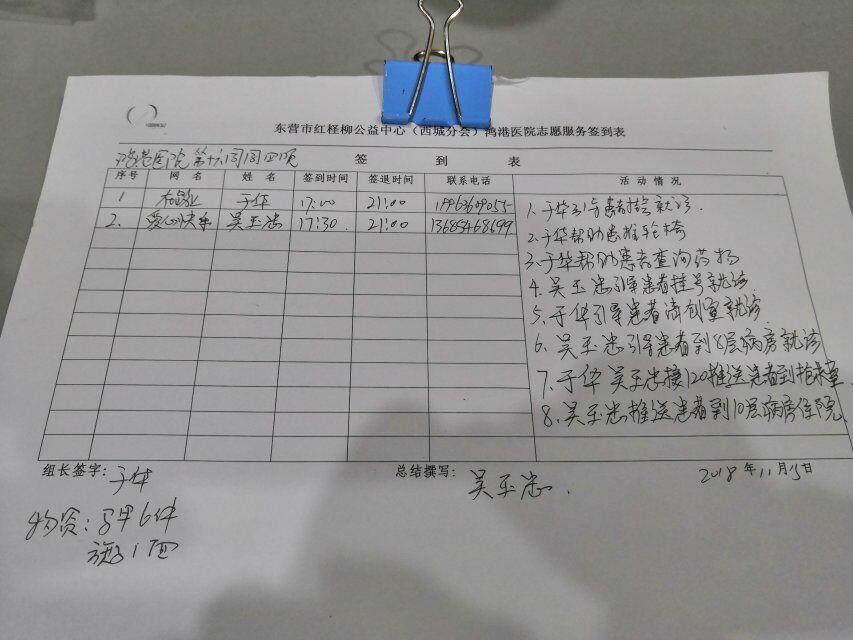 东营市红柽柳公益中心（西城分会）鸿港医院志愿服务签到表
鸿港医院第十六周周四晚
签 到 表
序号 网 名 姓 名 签到时间 签退时间 联系电话 活 动 情 况
1 于华 17:00 21:00
2. 爱心快乐 吴玉忠 17:30 21:00 13685468699
1.于华引导患者挂号就诊.
2.于华帮助患推轮椅
3.于华帮助患者查询药物
4.吴玉忠引导患者挂号就诊.
5.于华引导患者清创室就诊.
6.吴玉忠引导患者到8层病房就诊
7.于华 吴玉忠接120推送患者到抢救室
8.吴玉忠推送患者到10层病房住院.
组长签字：于华 总结撰写：吴玉忠. 2018年11月15日
物资：马甲6件
旗子1面